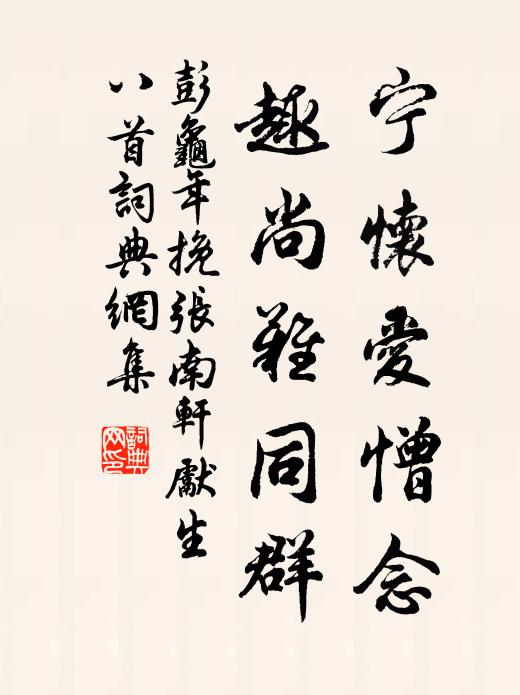 宁懷愛憎念
趣尚難同群
彭龜年挽張南軒獻生
八首詞典網集
詞典网印